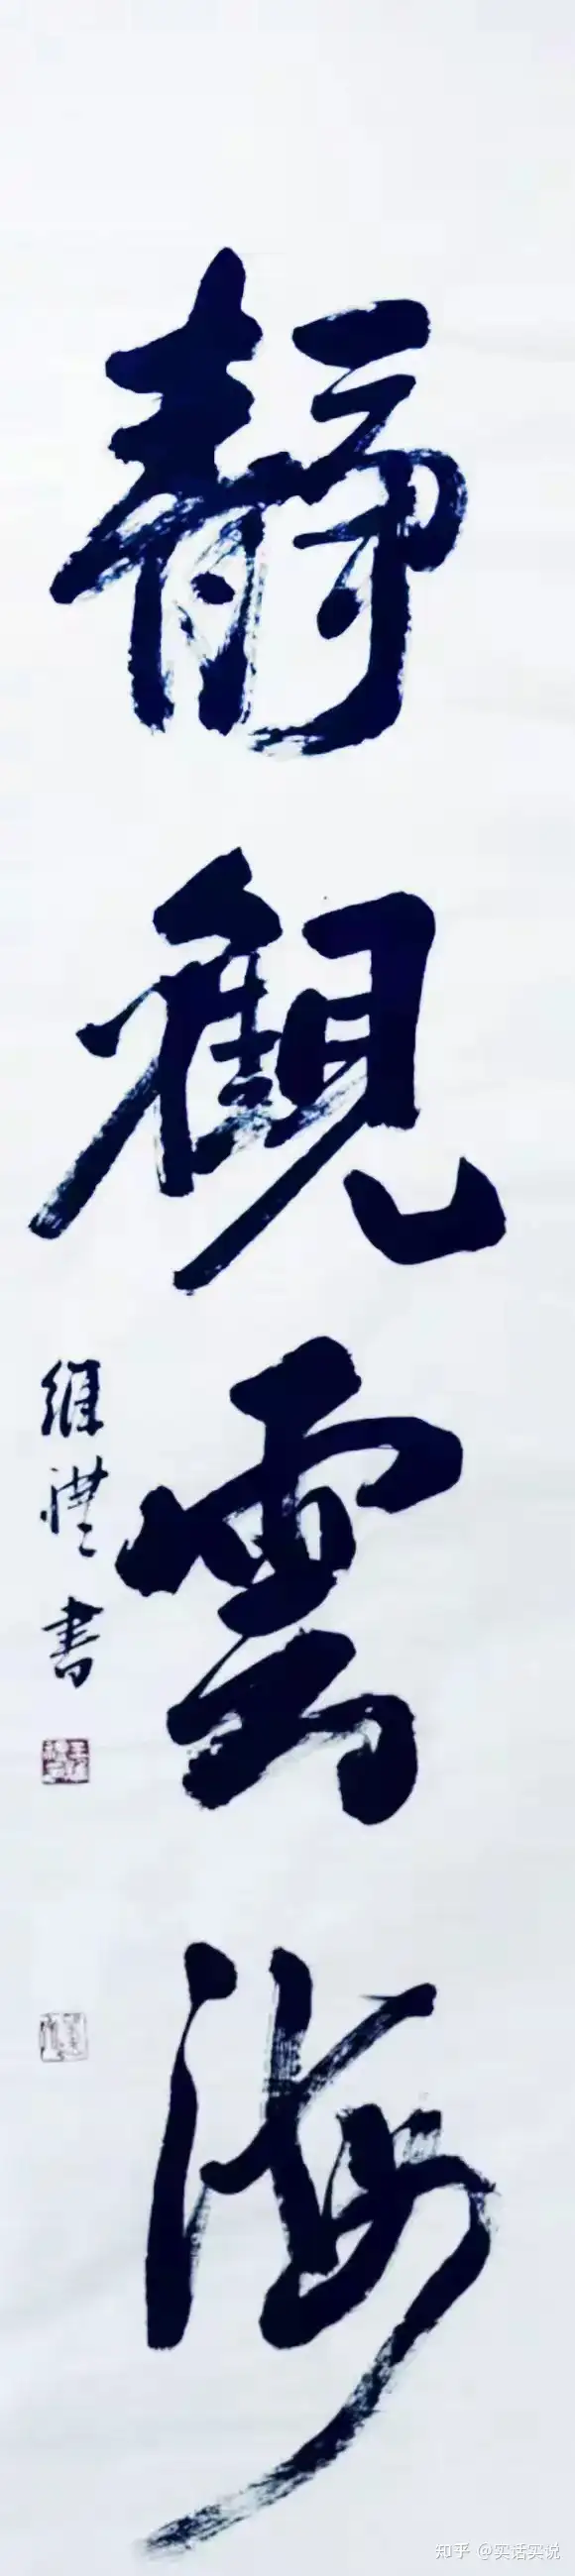 靜觀雲海
維禮書
知乎 @实话实说